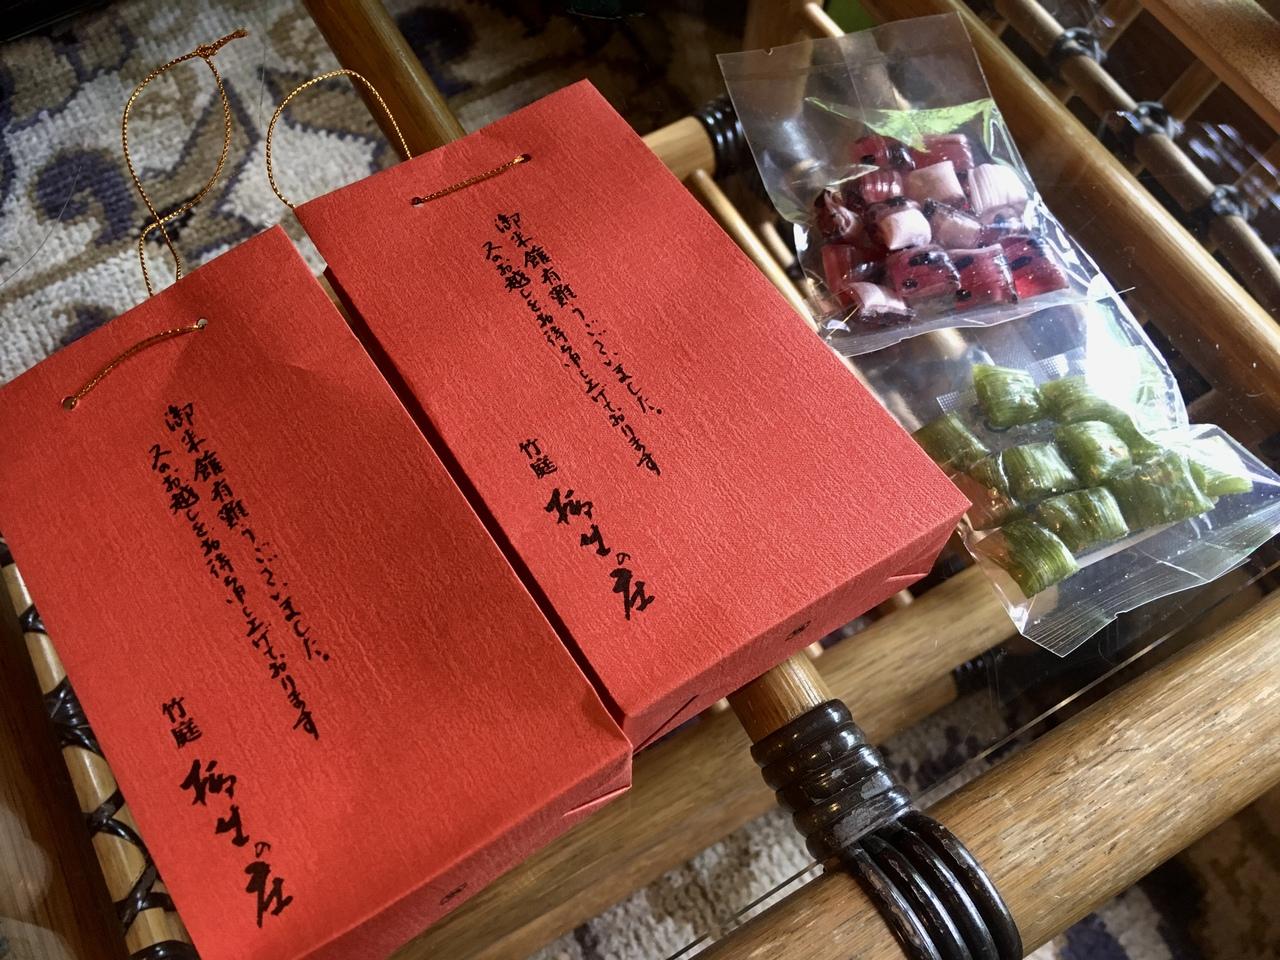 御来館有難うございました。
又のお越しをお待ち申し上げております
竹庭
柳生の庄
御来館有難うございました。
又のお越しをお待ち申し上げております
竹庭
柳生の庄